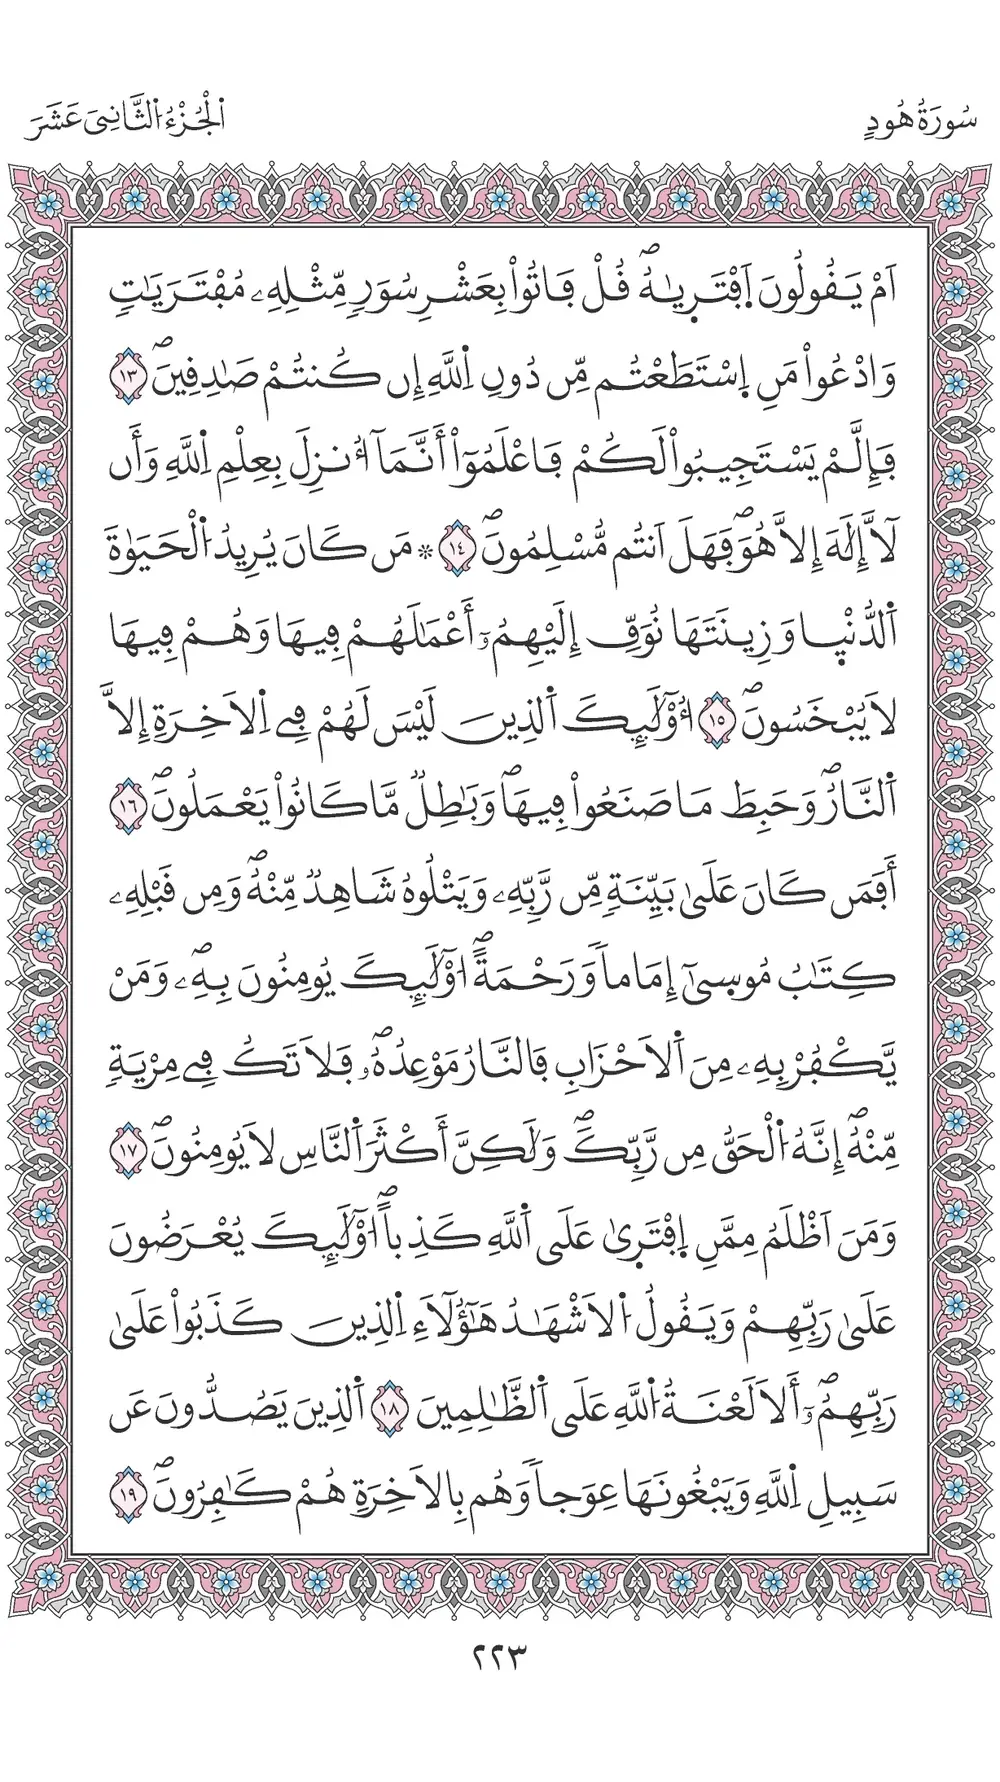 سُورَةُ هُودٍ
اَ۬لْجُزْءُ اُ۬لثَّانِيَ عَشَرَ
اَمْ يَقُولُونَ اَ۪فْتَر۪يٰهُۖ قُلْ فَاتُواْ بِعَشْرِ سُوَرٖ مِّثْلِهِۦ مُفْتَرَيَٰتٖ
وَادْعُواْ مَنِ اِ۪سْتَطَعْتُم مِّن دُونِ اِ۬للَّهِ إِن كُنتُمْ صَٰدِقِينَۖ ١٣
فَإِلَّمْ يَسْتَجِيبُواْ لَكُمْ فَاعْلَمُوٓاْ أَنَّمَآ أُنزِلَ بِعِلْمِ اِ۬للَّهِ وَأَن
لَّآ إِلَٰهَ إِلَّا هُوَۖ فَهَلَ اَنتُم مُّسْلِمُونَۖ ١٤ * مَن كَانَ يُرِيدُ اُ۬لْحَيَوٰةَ
اَ۬لدُّنْي۪ا وَزِينَتَهَا نُوَفِّ إِلَيْهِمُۥٓ أَعْمَٰلَهُمْ فِيهَا وَهُمْ فِيهَا
لَا يُبْخَسُونَۖ ١٥ أُوْلَٰٓئِكَ اَ۬لذِينَ لَيْسَ لَهُمْ فِے اِ۬لَاخِرَةِ إِلَّا
اَ۬لنَّارُۖ وَحَبِطَ مَا صَنَعُواْ فِيهَاۖ وَبَٰطِلٞ مَّا كَانُواْ يَعْمَلُونَۖ ١٦
أَفَمَن كَانَ عَلَىٰ بَيِّنَةٖ مِّن رَّبِّهِۦ وَيَتْلُوهُ شَاهِدٞ مِّنْهُۖ وَمِن قَبْلِهِۦ
كِتَٰبُ مُوس۪ىٰٓ إِمَاماٗ وَرَحْمَةًۖ اُوْلَٰٓئِكَ يُومِنُونَ بِهِۦۖ وَمَنْ
يَّكْفُرْ بِهِۦ مِنَ اَ۬لَاحْزَابِ فَالنَّارُ مَوْعِدُهُۥۖ فَلَا تَكُ فِے مِرْيَةٖ
مِّنْهُۖ إِنَّهُ اُ۬لْحَقُّ مِن رَّبِّكَۖ وَلَٰكِنَّ أَكْثَرَ اَ۬لنَّاسِ لَا يُومِنُونَۖ ١٧
وَمَنَ اَظْلَمُ مِمَّنِ اِ۪فْتَر۪ىٰ عَلَى اَ۬للَّهِ كَذِباًۖ اُوْلَٰٓئِكَ يُعْرَضُونَ
عَلَىٰ رَبِّهِمْ وَيَقُولُ اُ۬لَاشْهَٰدُ هَٰٓؤُلَآءِ اِ۬لذِينَ كَذَبُواْ عَلَىٰ
رَبِّهِمُۥٓۖ أَلَا لَعْنَةُ اُ۬للَّهِ عَلَى اَ۬لظَّٰلِمِينَ ١٨ اَ۬لذِينَ يَصُدُّونَ عَن
سَبِيلِ اِ۬للَّهِ وَيَبْغُونَهَا عِوَجاٗ وَهُم بِالَاخِرَةِ هُمْ كَٰفِرُونَۖ ١٩
٢٢٣